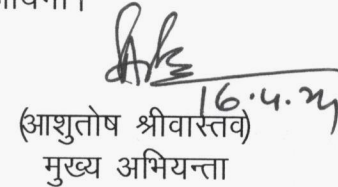 16.4.24
(आशुतोष श्रीवास्तव)
मुख्य अभियन्ता